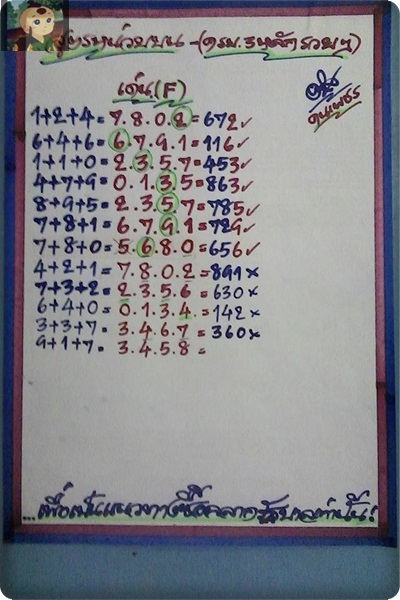 สูตรหน่วยบน -(ดรม. 3 หลัก รวมๆ)
เด่น(F)
1+2+4= 7.8.0.2=672✓
6+4+6= 6.7.9.1=116✓
1+1+0= 2.3.5.7=453✓
4+7+9= 0.1.3.5=863✓
8+9+5= 2.3.5.7=785✓
7+8+1= 6.7.9.1=729✓
7+8+0= 5.6.8.0=656✓
4+2+1= 7.8.0.2=899×
7+3+2= 2.3.5.6=630×
6+4+0= 0.1.3.4=142×
3+3+7= 3.4.6.7=360×
9+1+7= 3.4.5.8=
...เพื่อเป็นแนวทางซื้อสลากรัฐบาลเท่านั้น!